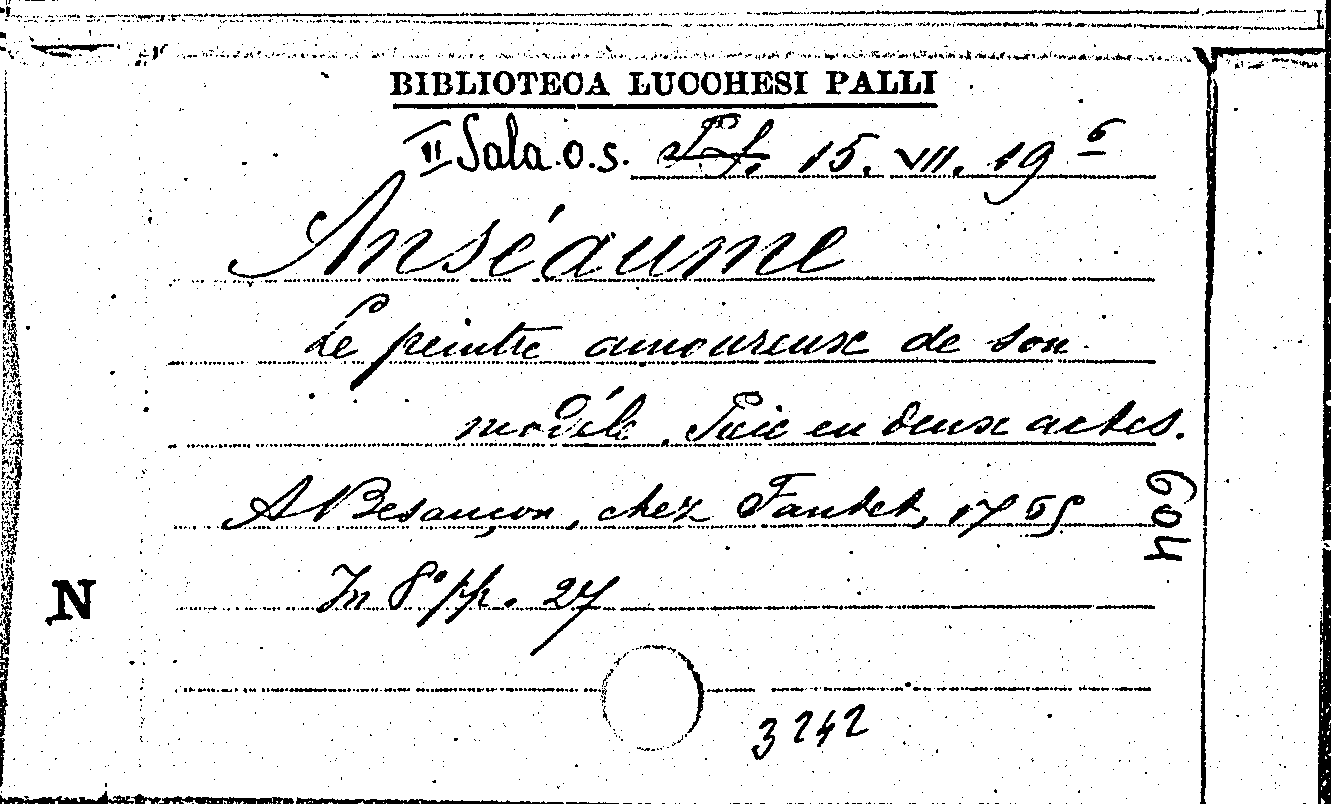 BIBLIOTECA LUCCHESI PALLI
II Sala.o.s. 15. VII. 19 6
Anséaume
Le peintre amoureux de son
modèle. Piéce en deux actes.
A Besançon, chez Fantet, 1765
In 8° pp. 27
604
N
3242